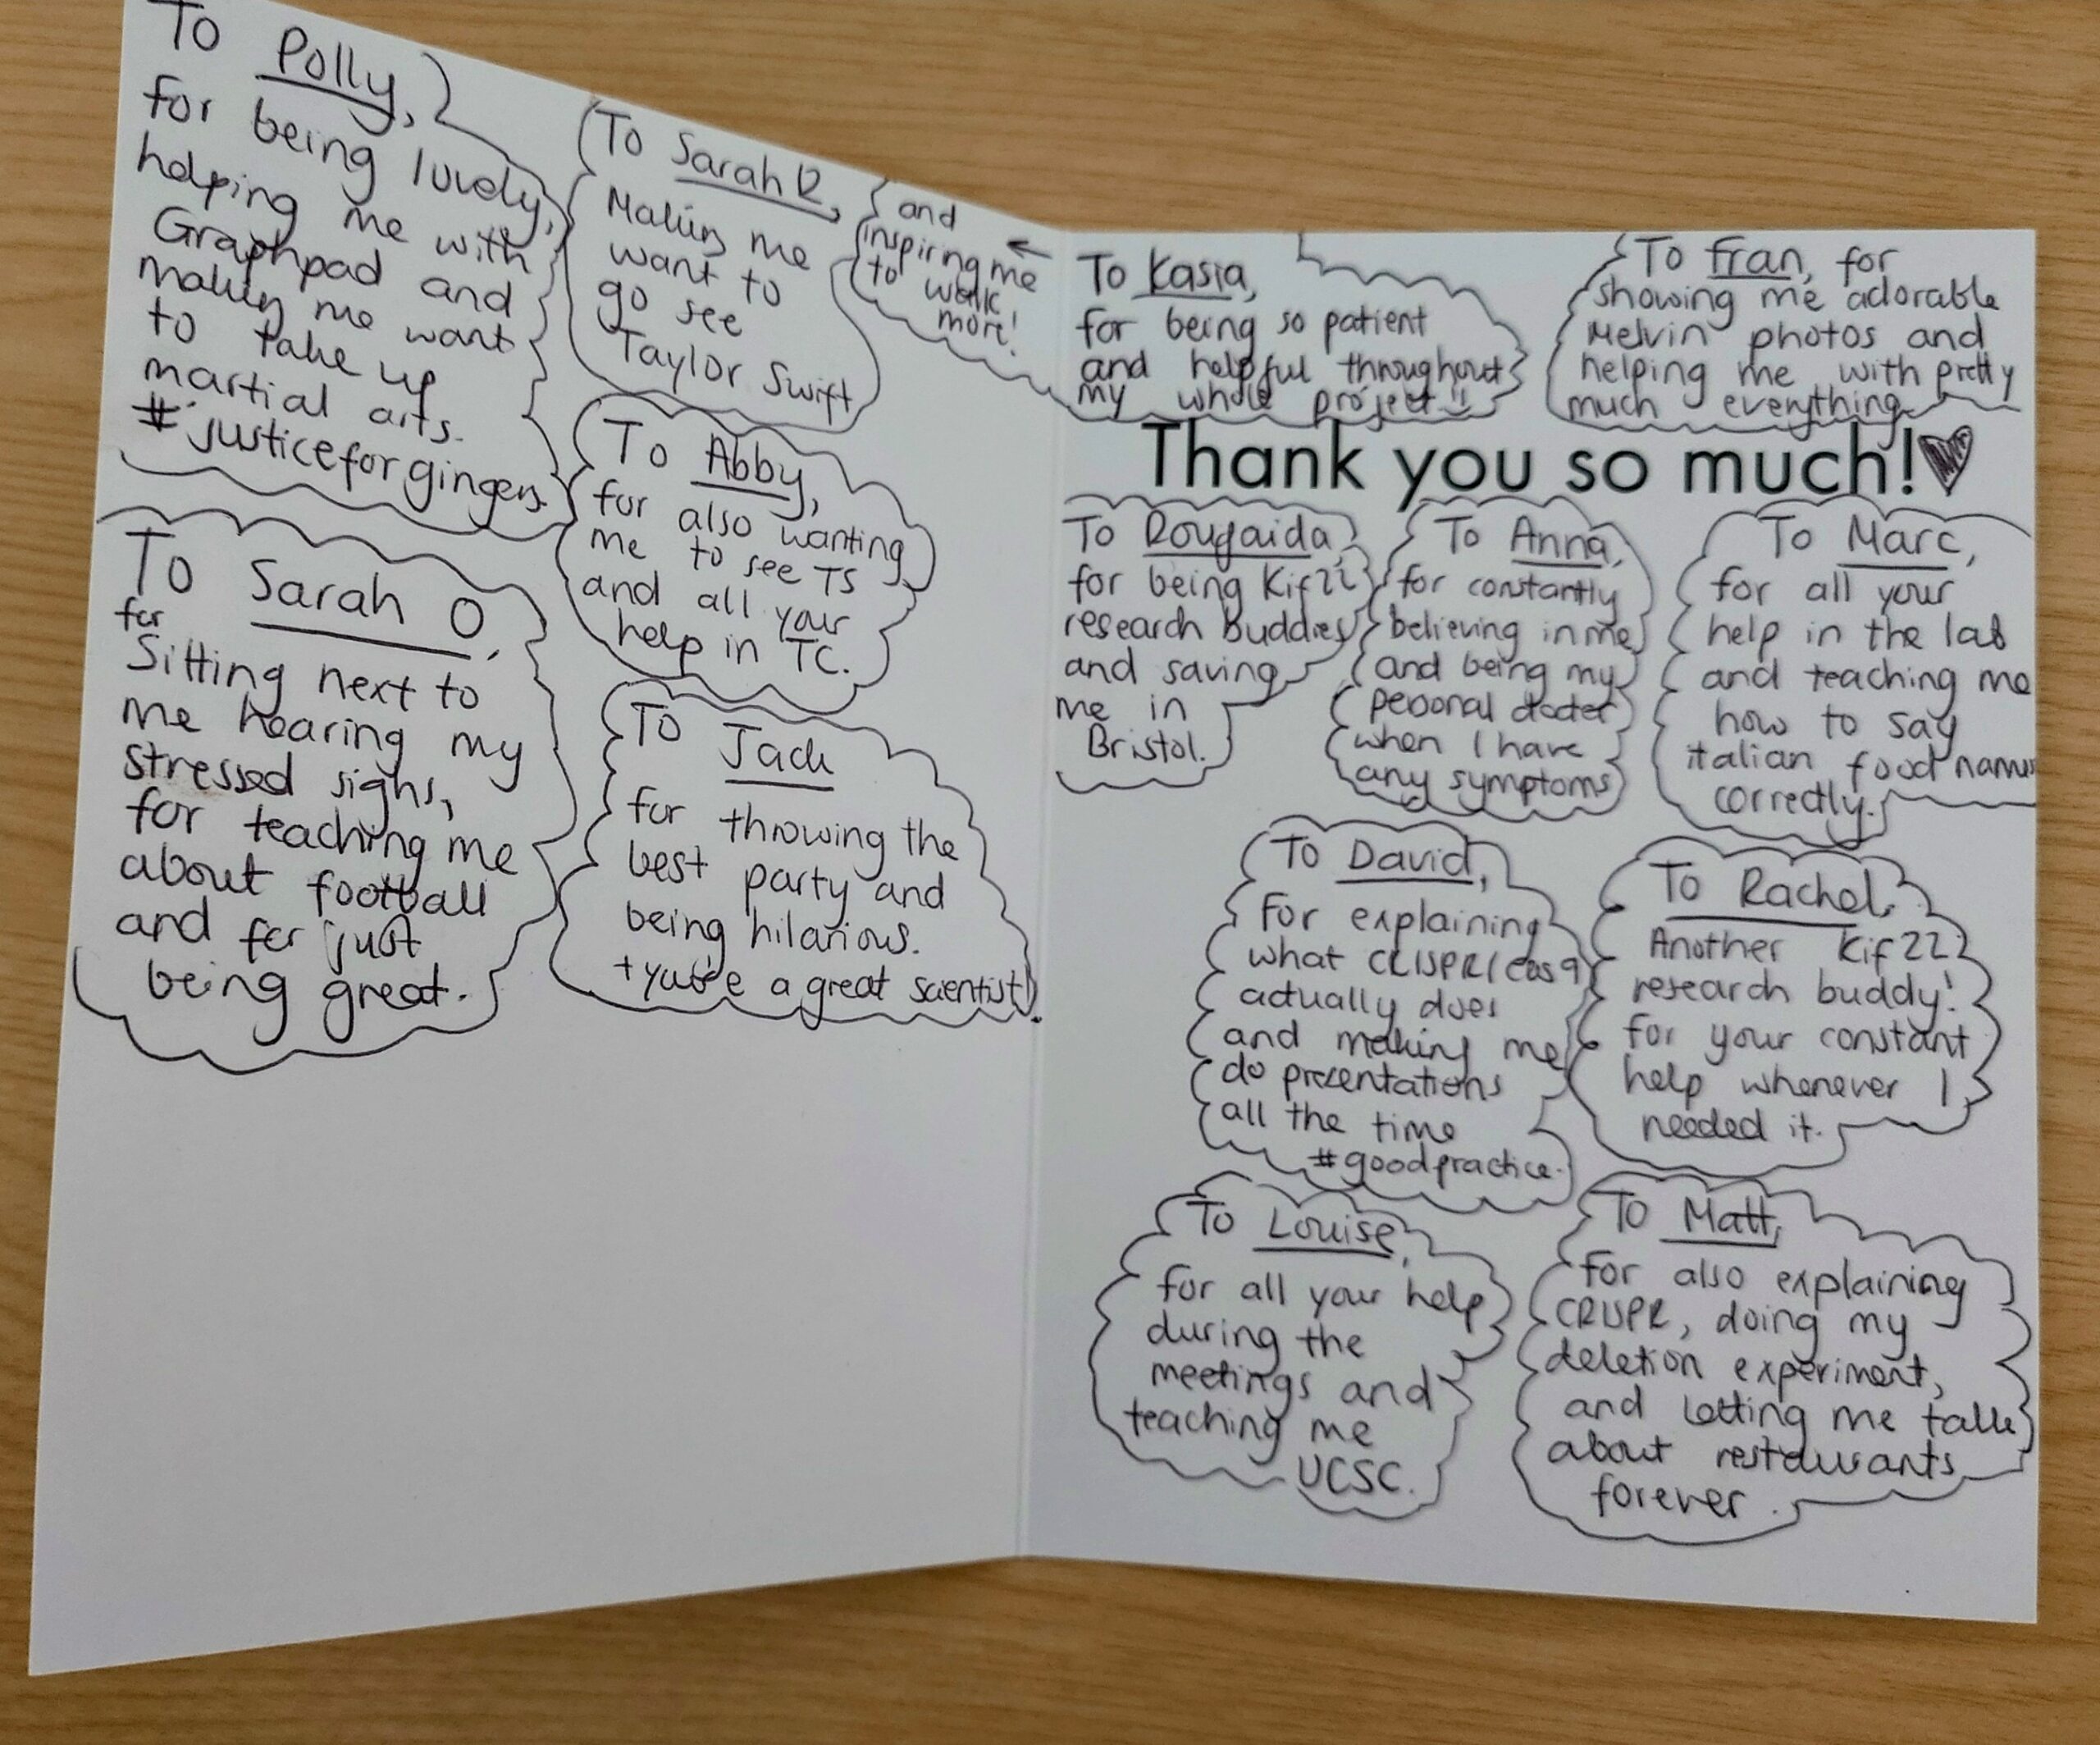 To Polly,
for being lovely,
helping me with
Graphpad and
making me want
to take up
martial arts.
#justiceforgingers.
To Sarah R,
Making me
want to
go see
Taylor Swift
and
inspiring me
to walk
more!
To Abby,
for also wanting
me to see TS
and all your
help in TC.
To Sarah O,
for
Sitting next to
me hearing my
stressed sighs,
for teaching me
about football
and for just
being great.
To Jack
for throwing the
best party and
being hilarious.
+ you're a great scientist!
To Kasia,
for being so patient
and helpful throughout
my whole project!!
To Fran, for
showing me adorable
Melvin photos and
helping me with pretty
much everything
Thank you so much!
To Rougaida,
for being Kif22
research buddies
and saving
me in
Bristol.
To Anna,
for constantly
believing in me
and being my
personal doctor
when I have
any symptoms
To Marc,
for all your
help in the lab
and teaching me
how to say
italian food names
correctly.
To David,
for explaining
what CRISPR/Cas9
actually does
and making me
do presentations
all the time
#goodpractice.
To Rachel,
Another Kif22
research buddy!
for your constant
help whenever I
needed it.
To Louise,
for all your help
during the
meetings and
teaching me
UCSC.
To Matt,
for also explaining
CRISPR, doing my
deletion experiment,
and letting me talk
about restaurants
forever.